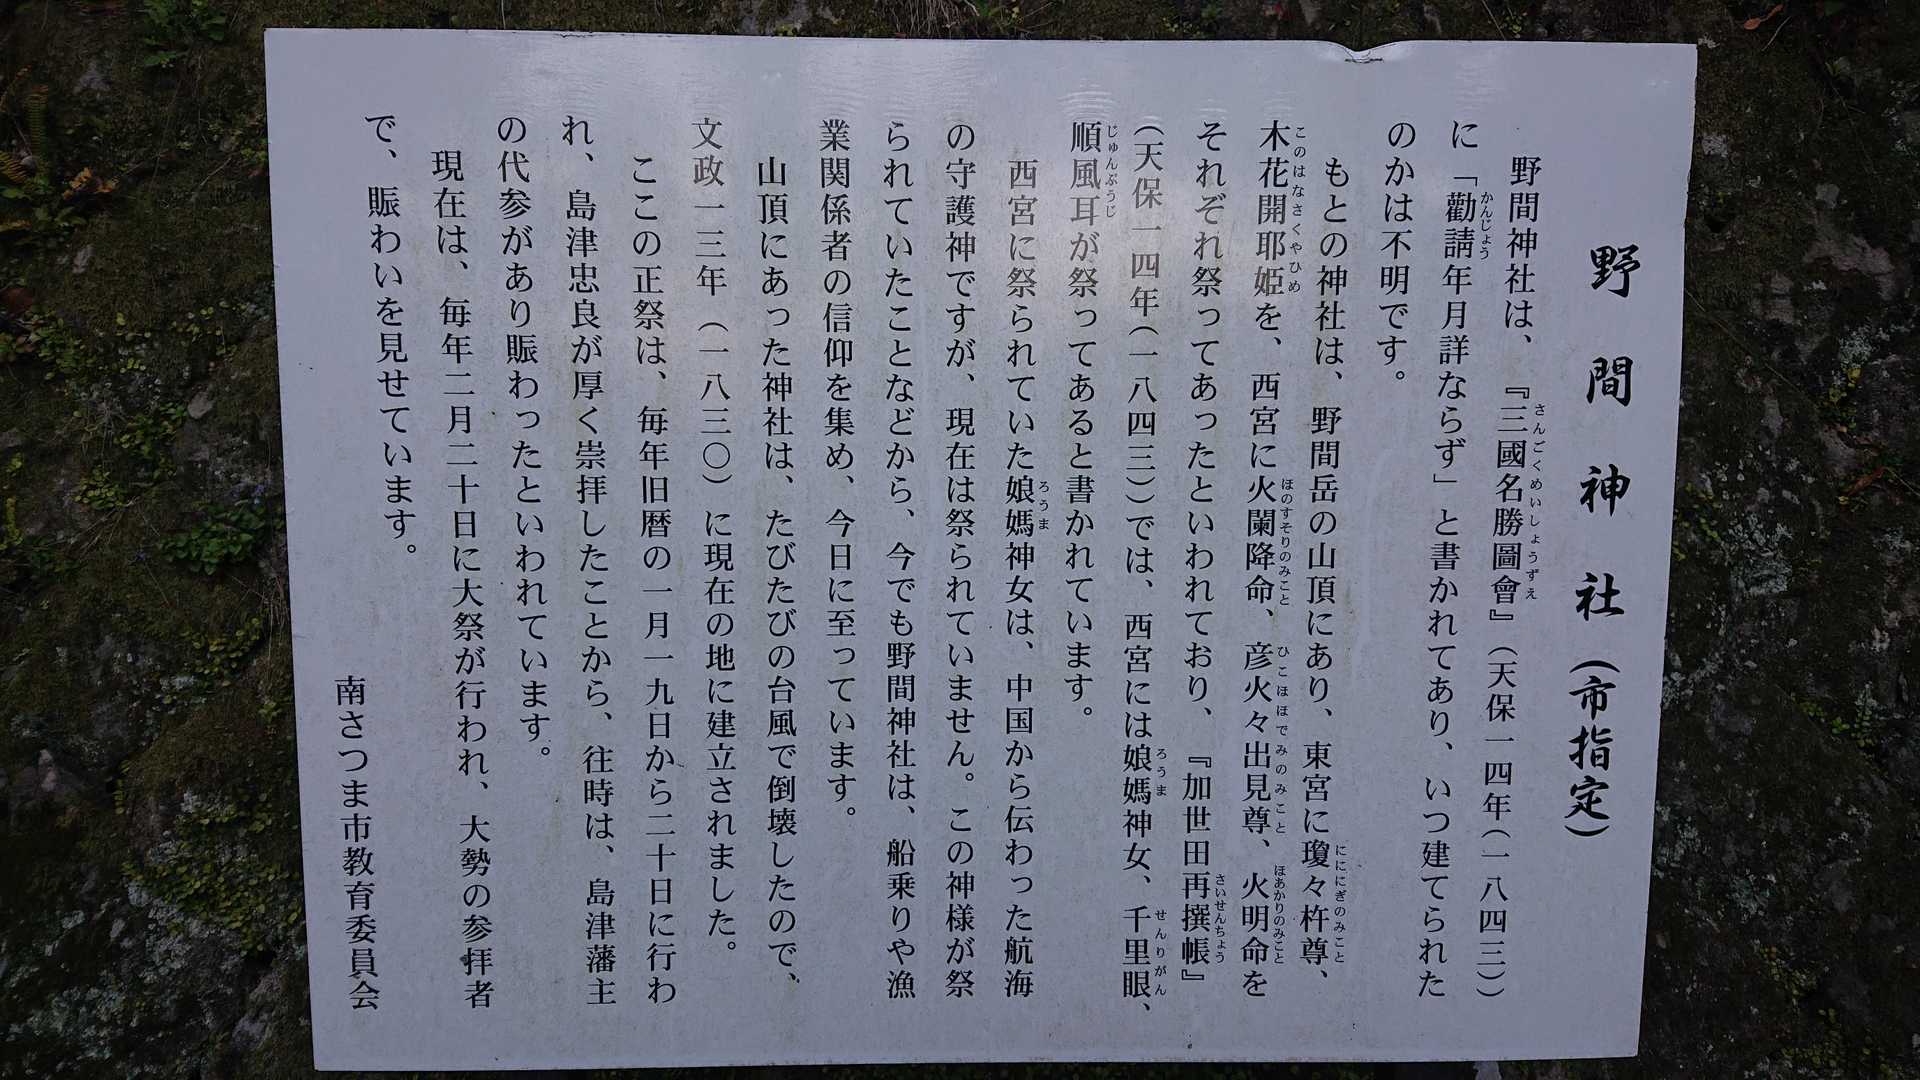 野間神社（市指定）
野間神社は、『三國名勝圖會』（天保一四年（一八四三）
に「勸請年月詳ならず」と書かれてあり、いつ建てられた
のかは不明です。
もとの神社は、野間岳の山頂にあり、東宮に瓊々杵尊、
木花開耶姫を、西宮に火闌降命、彦火々出見尊、火明命を
それぞれ祭ってあったといわれており、『加世田再撰帳』
（天保一四年（一八四三））では、西宮には娘媽神女、千里眼、
順風耳が祭ってあると書かれています。
西宮に祭られていた娘媽神女は、中国から伝わった航海
の守護神ですが、現在は祭られていません。この神様が祭
られていたことなどから、今でも野間神社は、船乗りや漁
業関係者の信仰を集め、今日に至っています。
山頂にあった神社は、たびたびの台風で倒壊したので、
文政一三年（一八三〇）に現在の地に建立されました。
ここの正祭は、毎年旧暦の一月一九日から二十日に行わ
れ、島津忠良が厚く崇拝したことから、往時は、島津藩主
の代参があり賑わったといわれています。
現在は、毎年二月二十日に大祭が行われ、大勢の参拝者
で、賑わいを見せています。
南さつま市教育委員会